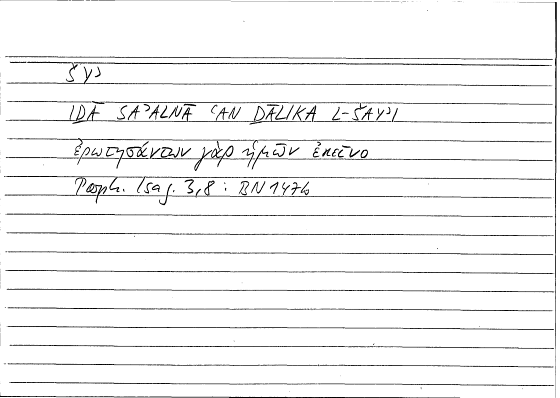 šyʾ
IḎĀ SAʾALNĀ ʿAN ḎĀLIKA L-ŠAYʾI
ἐρωτησάντων γὰρ ἡμῶν ἐκεῖνο
Porph. Isag. 3,8 : BN 147b